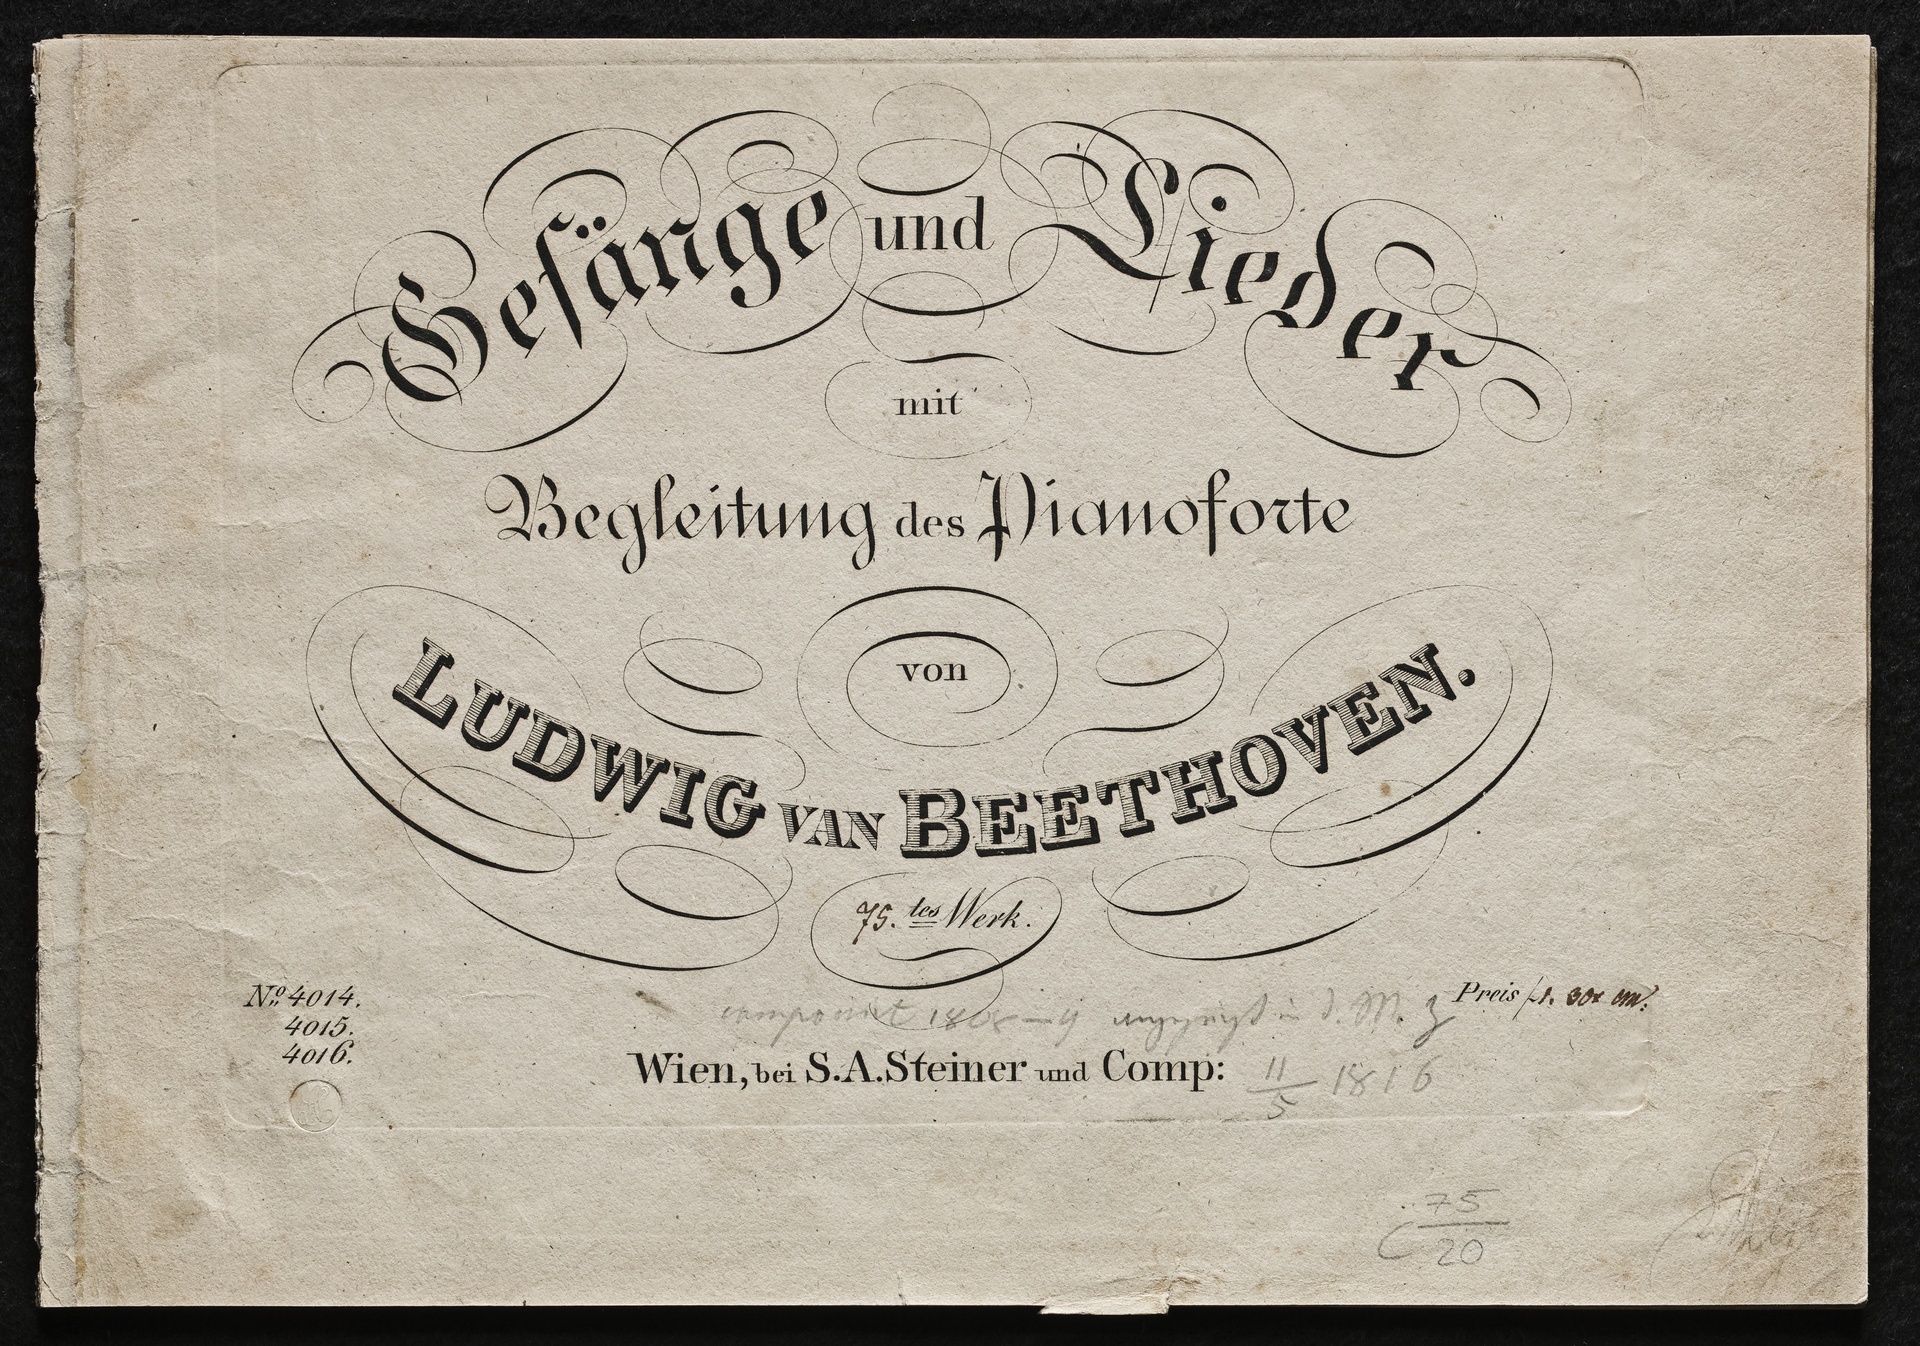 Gesänge und Lieder
mit
Begleitung des Pianoforte
von
LUDWIG VAN BEETHOVEN.
75. tes Werk.
No. 4014.
4015.
4016.
Preis f1. 30x cm.
componirt 1808 in d. M. z
Wien, bei S.A. Steiner und Comp:
11/5 1816
75
20